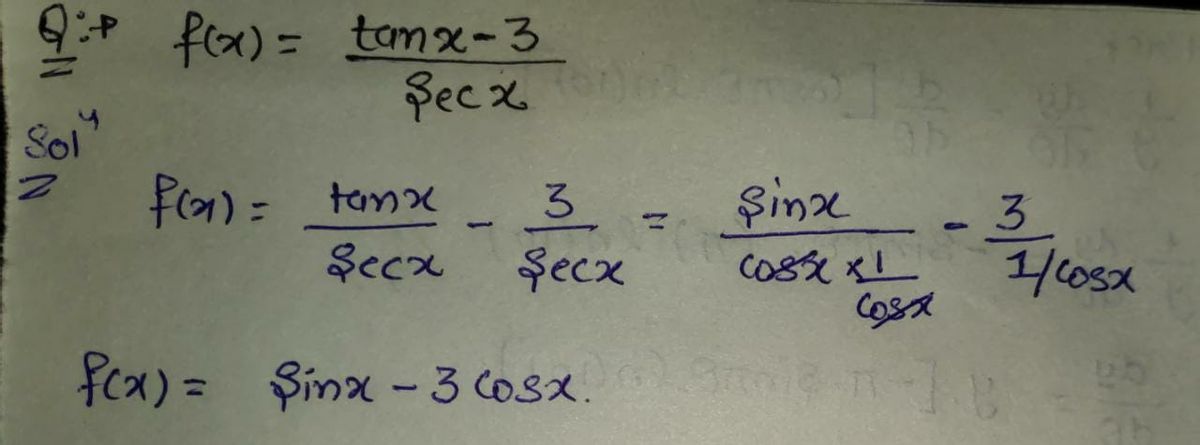 Q:→ f(x) = tanx-3 / Secx
Solⁿ
f(x) = tanx/Secx - 3/Secx = Sinx/(cosx × 1/cosx) - 3/(1/cosx)
f(x) = Sinx - 3 cosx.